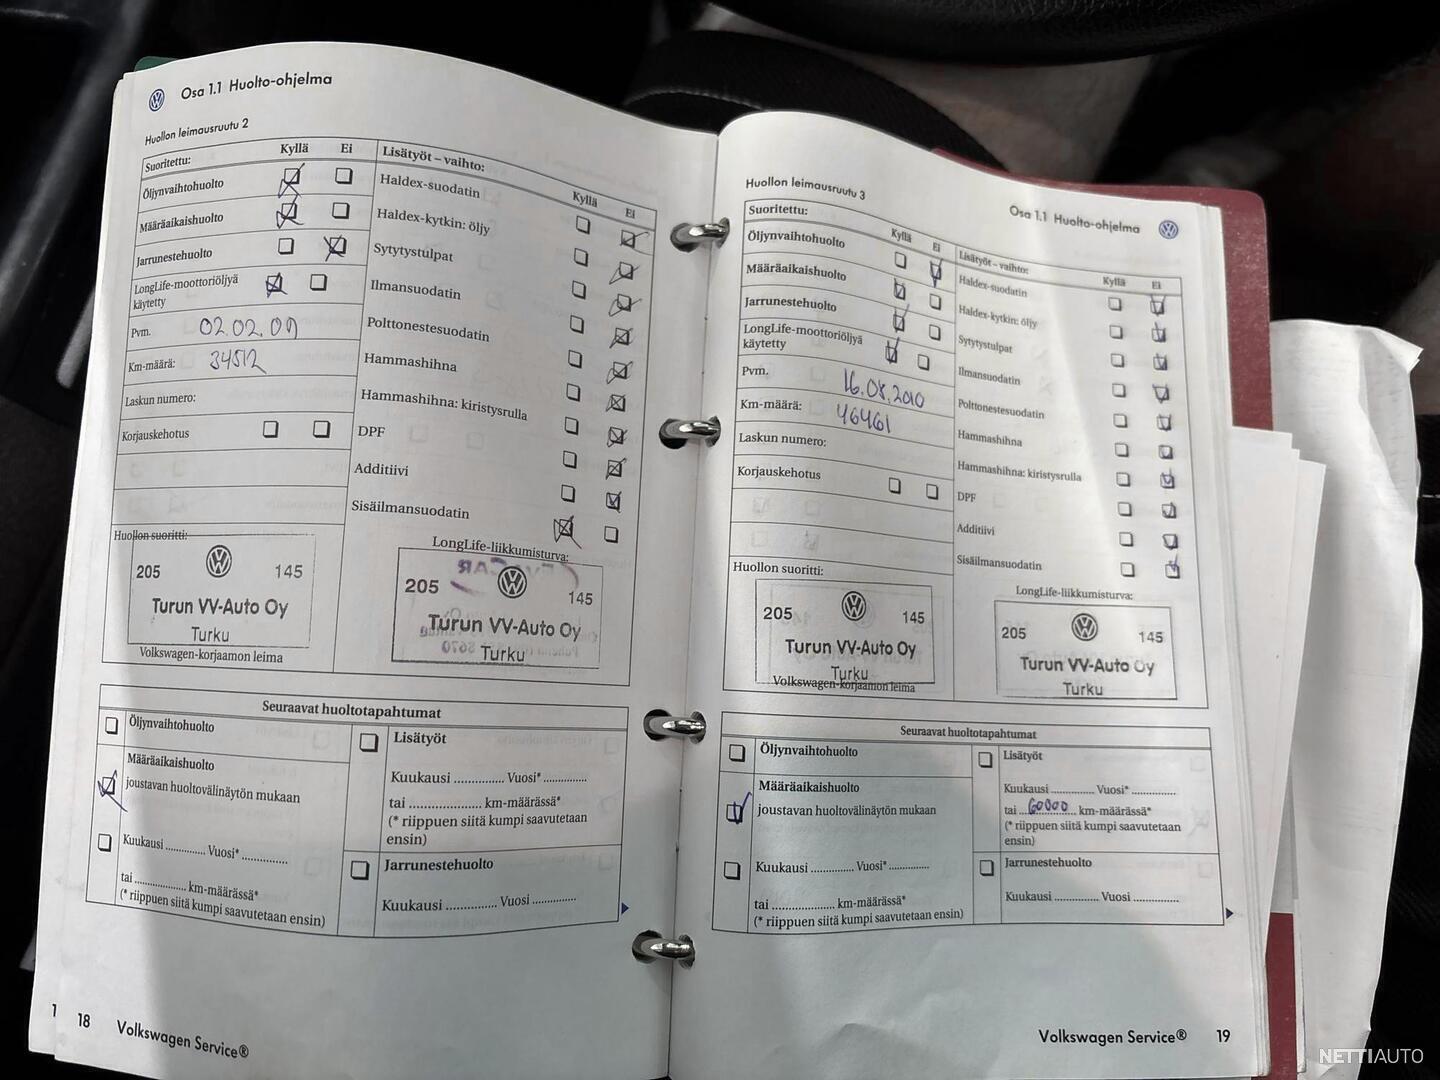 Osa 1.1 Huolto-ohjelma
Huollon leimausruutu 2
Suoritettu: Kyllä Ei
Öljynvaihtohuolto
Määräaikaishuolto
Jarrunestehuolto
LongLife-moottoriöljyä
käytetty
Pvm. 02.02.09
Km-määrä: 34512
Laskun numero:
Korjauskehotus
Lisätyöt – vaihto: Kyllä Ei
Haldex-suodatin
Haldex-kytkin: öljy
Sytytystulpat
Ilmansuodatin
Polttonestesuodatin
Hammashihna
Hammashihna: kiristysrulla
DPF
Additiivi
Sisäilmansuodatin
Huollon suoritti:
205 145
Turun VV-Auto Oy
Turku
Volkswagen-korjaamon leima
LongLife-liikkumisturva:
205 145
Turun VV-Auto Oy
Turku
Seuraavat huoltotapahtumat
Öljynvaihtohuolto
Määräaikaishuolto
joustavan huoltovälinäytön mukaan
Kuukausi .............. Vuosi* ...............
tai .................... km-määrässä*
(* riippuen siitä kumpi saavutetaan ensin)
Lisätyöt
Kuukausi .............. Vuosi* .............
tai .................... km-määrässä*
(* riippuen siitä kumpi saavutetaan
ensin)
Jarrunestehuolto
Kuukausi .............. Vuosi .............
1 18 Volkswagen Service®
Huollon leimausruutu 3
Osa 1.1 Huolto-ohjelma
Suoritettu: Kyllä Ei
Öljynvaihtohuolto
Määräaikaishuolto
Jarrunestehuolto
LongLife-moottoriöljyä
käytetty
Pvm. 16.08.2010
Km-määrä: 46461
Laskun numero:
Korjauskehotus
Lisätyöt – vaihto: Kyllä Ei
Haldex-suodatin
Haldex-kytkin: öljy
Sytytystulpat
Ilmansuodatin
Polttonestesuodatin
Hammashihna
Hammashihna: kiristysrulla
DPF
Additiivi
Sisäilmansuodatin
Huollon suoritti:
205 145
Turun VV-Auto Oy
Turku
Volkswagen-korjaamon leima
LongLife-liikkumisturva:
205 145
Turun VV-Auto Oy
Turku
Seuraavat huoltotapahtumat
Öljynvaihtohuolto
Määräaikaishuolto
joustavan huoltovälinäytön mukaan
Kuukausi .............. Vuosi* .............
tai .................... km-määrässä*
(* riippuen siitä kumpi saavutetaan ensin)
Lisätyöt
Kuukausi .............. Vuosi* .............
tai 60000 km-määrässä*
(* riippuen siitä kumpi saavutetaan
ensin)
Jarrunestehuolto
Kuukausi .............. Vuosi .............
Volkswagen Service® 19
NETTIAUTO